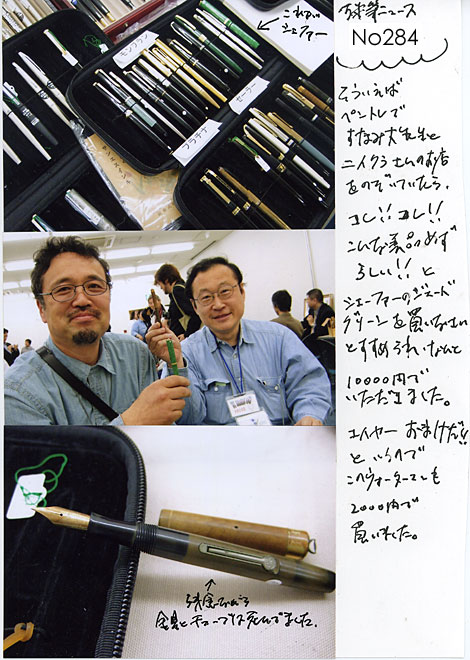 これが
シェーファー
セーラー
プラチナ
万年筆ニュース
No284
そういえば
ペントレで
すなみ大先生と
ニイクラさんのお店
をのぞいていたら、
コレ!!コレ!!
こんな美品めず
らしい!!と
シェーファーのジェード
グリーンを買いなさい
とすすめられ、なんと
10000円で
いただきました。
エイヤー おまけだ!!
というので
このウォーターマンも
2000円で
買いました。
残念ながら
金具とチューブは死んでました.